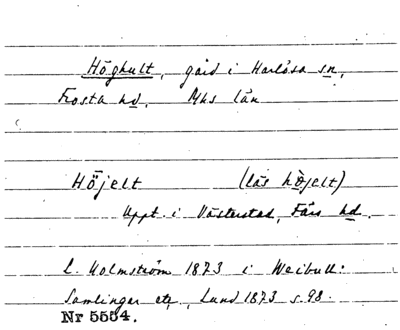 Höghult, gård i Harlösa sn,
Frosta hd. Mhs län
Höjelt (läs höjelt)
Uppt. i Västerstad, Färs hd.
L. Holmström 1873 i Weibull:
Samlingar etc, Lund 1873 s. 98.
Nr 5554.